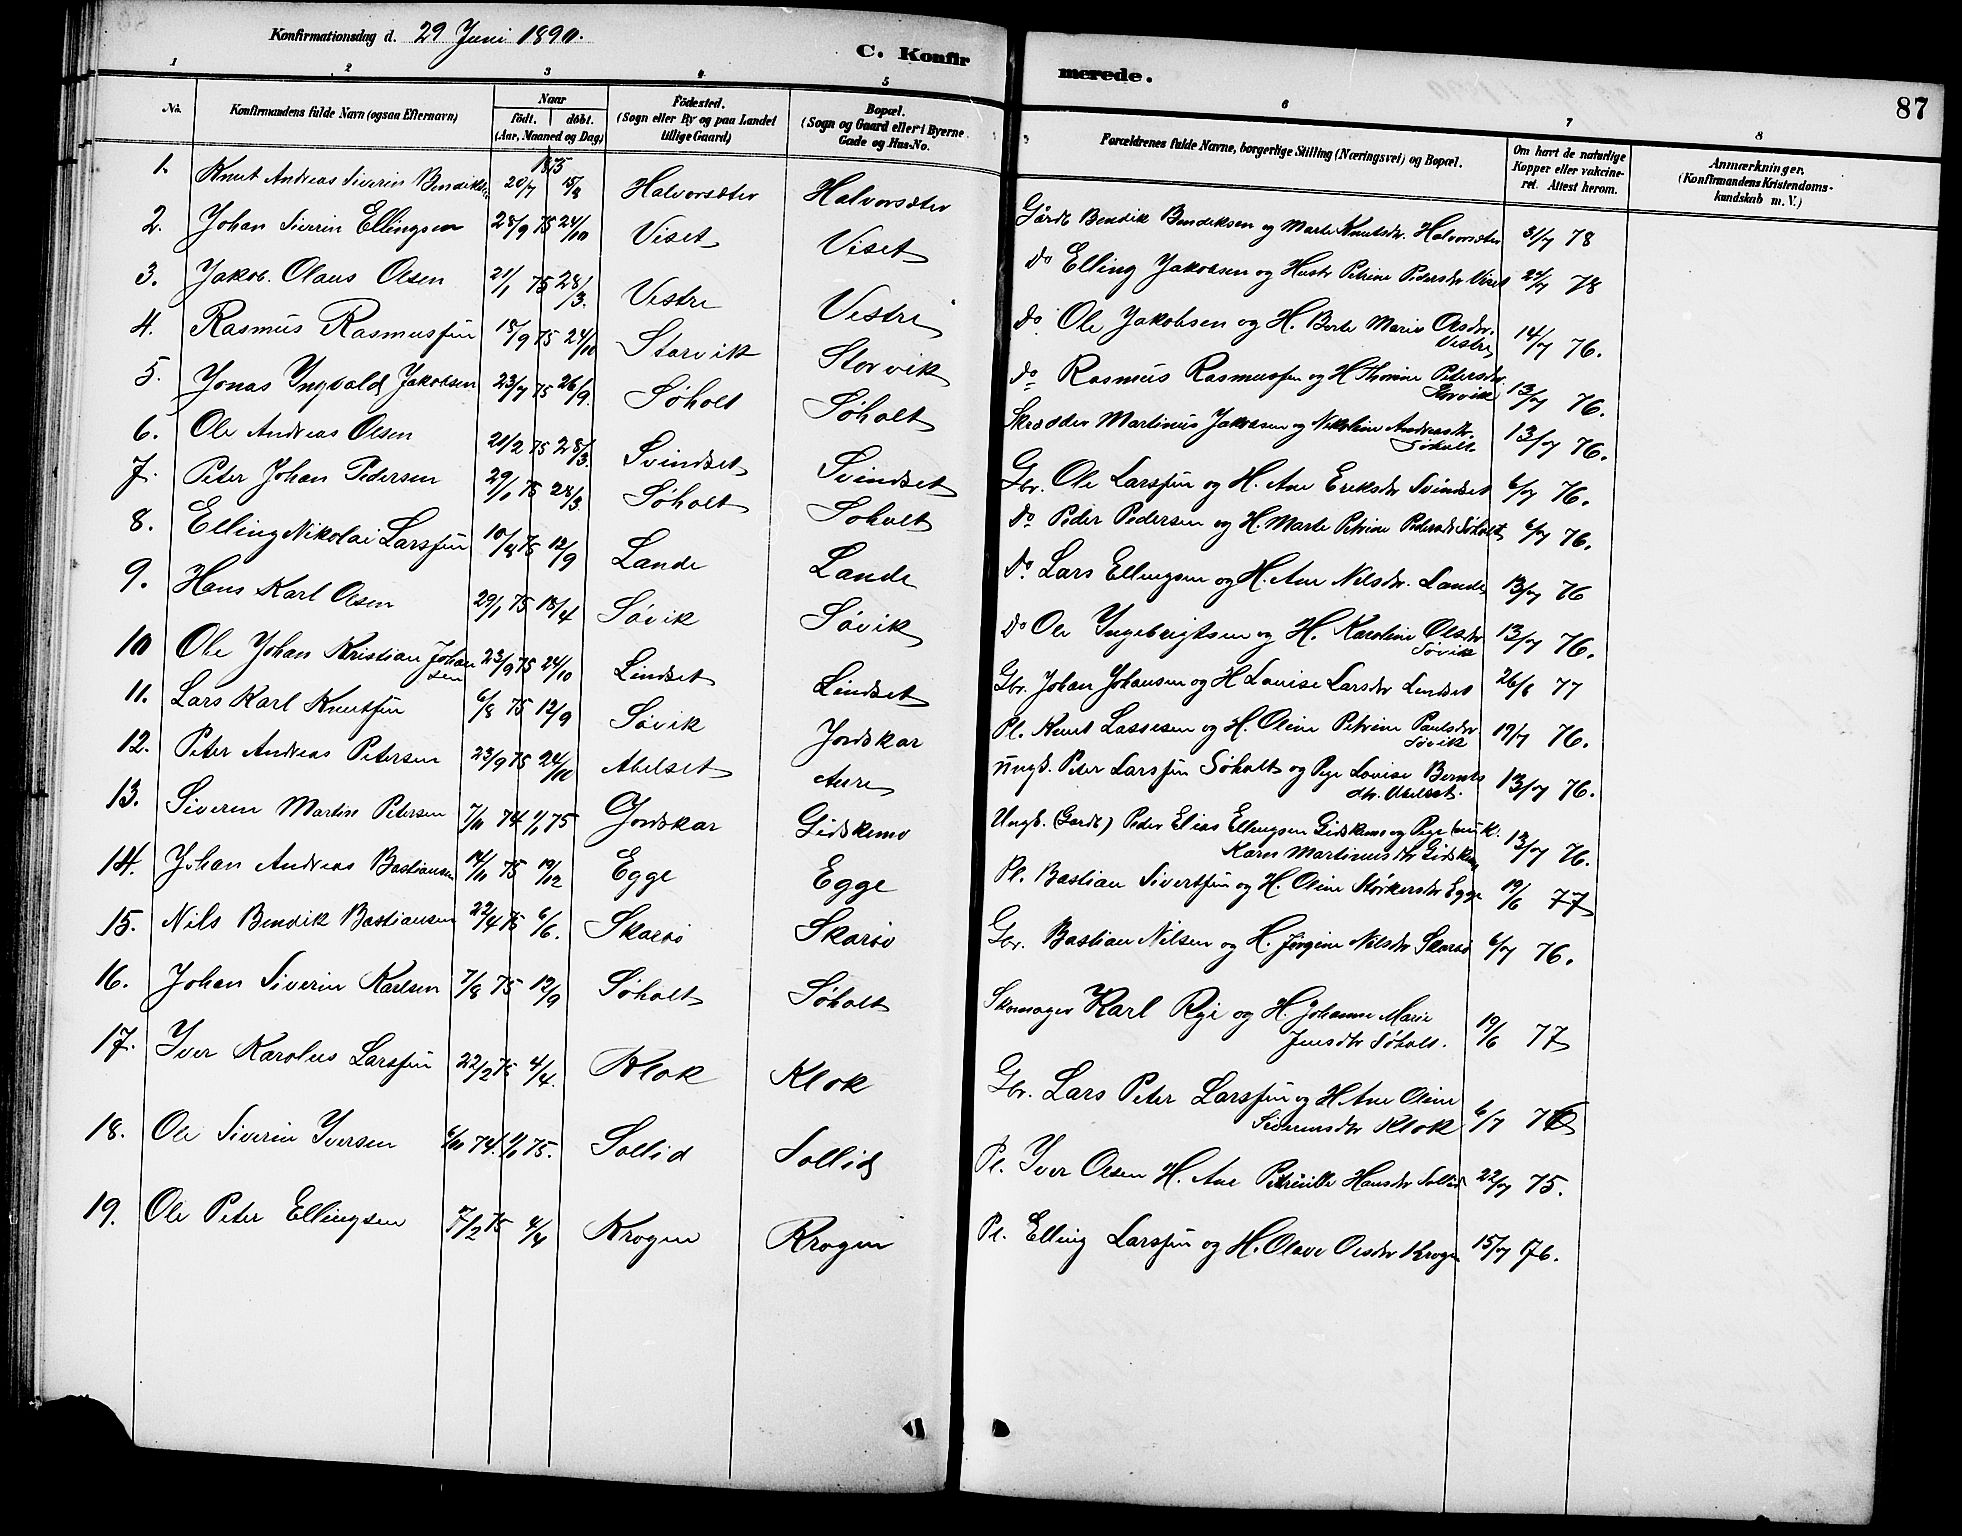 Konfirmationsdag d. 29 Juni 1890.
C. Konfirmerede.
87
1 2 3 4 5 6 7 8
No. Konfirmandens fulde Navn (ogsaa Efternavn) Naar födt. döbt. (Aar, Maaned og Dag) Födested. (Sogn eller By og paa Landet tillige Gaard) Bopæl. (Sogn og Gaard eller i Byerne Gade og Hus-No. Forældrenes fulde Navne, borgerlige Stilling (Næringsvei) og Bopæl. Om havt de naturlige Kopper eller vakcineret. Attest herom. Anmærkninger. (Konfirmandens Kristendomskundskab m. V.)
1. Knut Andreas Siverin Bendiksen 1875 20/7 15/8 Halvorsæter Halvorsæter Gårdb Bendik Bendiksen og Marte Knutsdr. Halvorsæter 31/7 78
2. Johan Siverin Ellingsen 28/9 75 24/10 Viset Viset do Elling Jakobsen og Hustr Petrine Pedersdr Viset 24/7 78
3. Jakob. Olaus Olsen 21/1 75 28/3. Vestre Vestre do Ole Jakobsen og H. Berte Marie Olsdr. Vestre 14/7 76.
4. Rasmus Rasmussen 18/9 75 24/10 Storvik Storvik do Rasmus Rasmussen og H Thorine Petersdr. Storvik 13/7 76.
5. Jonas Ingvald Jakobsen 23/7 75 26/9. Søholt Søholt Skrædder Martinus Jakobsen og Nikoline Andreasdr. Søholt. 13/7 76.
6. Ole Andreas Olsen 21/2 75 28/3. Svindset Svindset Gbr. Ole Larssen og H. Ane Eriksdr Svindset 6/7 76.
7. Peter Johan Pedersen 29/1 75 28/3. Søholt Søholt do Peder Pedersen og H. Marte Petrine Pedersdr Søholt 6/7 76.
8. Elling Nikolai Larssen 10/8 75 12/9 Lande Lande do Lars Ellingsen og H. Ane Nilsdr. Lande 13/7 76
9. Hans Karl Olsen 29/1 75 18/4 Søvik Søvik do Ole Ingebrigtsen og H. Karoline Olsdr Søvik 13/7 76.
10 Ole Johan Kristian Johansen 23/9 75 24/10 Lindset Lindset Gbr. Johan Johansen og H Louise Larsdr Lindset 26/6 77
11. Lars Karl Knutsen 6/8 75 12/9 Søvik Jordskar Pl. Knut Lassesen og H. Oline Petrine Paulsdr Søvik 19/7 76.
12. Peter Andreas Petersen 23/9 75 24/10 Abelset Aure Ungk. Peter Larssen Søholt og Pige Lovise Berntsdtr. Abelset. 13/7 76.
13. Siveren Martin Petersen 7/11 74 1/1 75 Jordskar Gidskemo Ungk. (Gardb) Peder Elias Ellingsen Gidskemo og Pige (nu k. Karn Martinusdtr Gidskem 13/7 76.
14. Johan Andreas Bastiansen 14/11 75 19/12 Egge Egge Pl. Bastian Sivertsen og H. Oline Størkersdr Egge 19/6 77
15. Nils Bendik Bastiansen 22/4 75 6/6. Skarsø Skarsø Gbr. Bastian Nilsen og H. Jørgine Nilsdr Skarsø 6/7 76.
16. Johan Siverin Karlsen 7/8 75 12/9 Søholt Søholt Skomager Karl Rye og H. Johanne Marie Jensdtr Søholt. 19/6 77
17. Iver Karolus Larssen 22/2 75 4/4. Klok Klok Gbr. Lars Peter Larssen og H Ane Oline Siverinsdtr Klok 6/7 76
18. Ole Siverin Iversen 6/11 74. 1/1 75. Sollid Sollid Pl. Iver Olsen H. Ane Petrikille Hansdr Sollid 22/7 75.
19. Ole Peter Ellingsen 7/2 75 4/4 Krogen Krogen Pl. Elling Larssen og H. Olave Olsdtr Krogen 15/7 76.